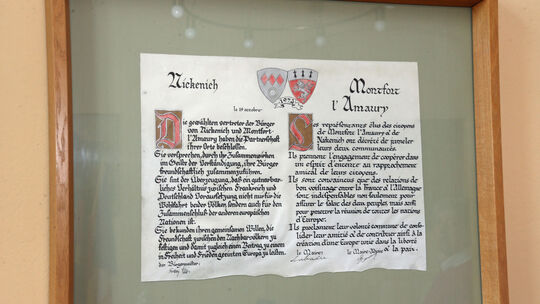 Nickenich
Montfort
l'Amaury
le 19 octobre
1974
Die gewählten vertreter der Bürger
von Nickenich und Montfort-
l'Amaury haben die Partnerschaft
ihrer Orte beschlossen.
Sie versprechen, durch ihr Zusammenwirken
im Geiste der Verständigung, ihre Bürger
freundschaftlich zusammenzuführen.
Sie sind der Überzeugung, dass ein gutnachbar-
liches Verhältnis zwischen Frankreich und
Deutschland Voraussetzung nicht nur für die
Wohlfahrt beider Völker sondern auch für den
Zusammenschluß der anderen europäischen
Nationen ist.
Sie bekunden ihren gemeinsamen Willen, die
Freundschaft zwischen den Nachbarvölkern zu
festigen und damit zugleich einen Beitrag zu einem
in Freiheit und Frieden geeinten Europa zu leisten.
der Bürgermeister:
Les représentants élus des citoyens
de Montfort l'Amaury et de
Nickenich ont décrété de jumeler
leurs deux communautés.
Ils prennent l'engagement de coopérer dans
un esprit d'entente au rapprochement
amical de leurs citoyens.
Ils sont convaincus que des relations de
bon voisinage entre la France et l'Allemagne
sont indispensables non seulement pour
assurer le salut des deux peuples mais aussi
pour procurer la réunion de toutes les nations
d'Europe.
Ils proclament leur volonté commune de conso-
lider leur amitié et de contribuer ainsi à la
création d'une Europe unie dans la liberté
et la paix.
Le Maire: Le Maire-Adjoint